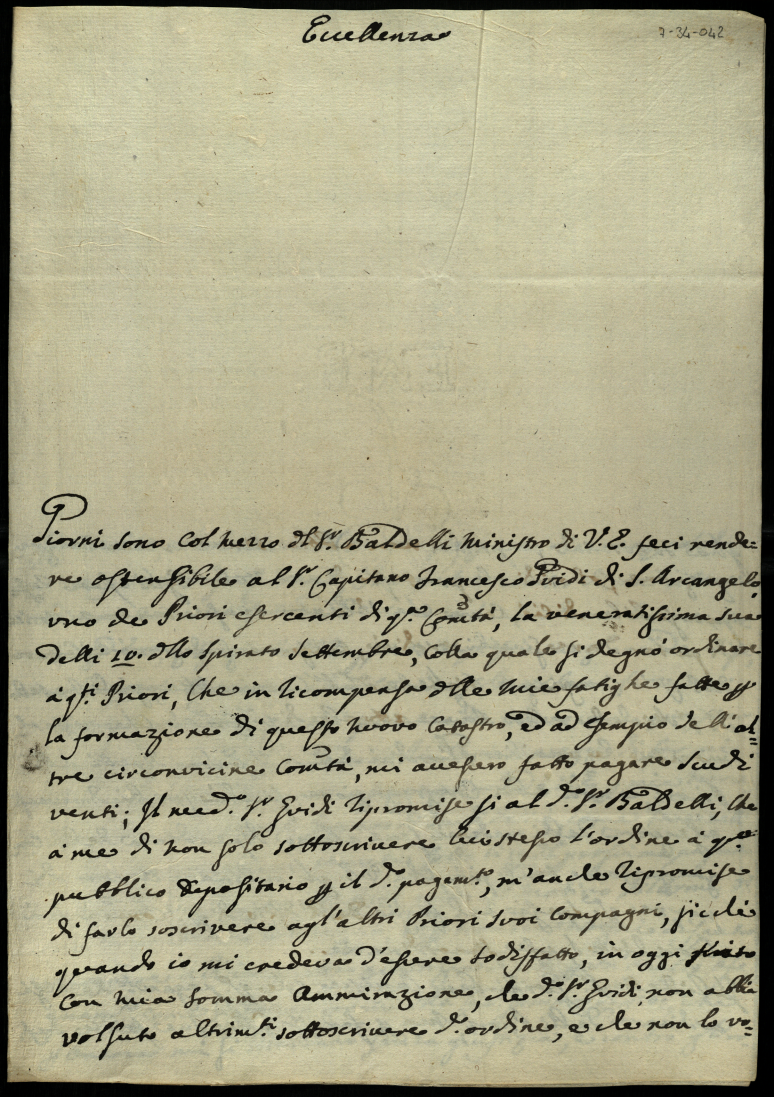 Eccellenza
7-34-042
Giorni sono col mezzo dl Sr. Baldelli Ministro di V. E. feci rende=
re ostensibile al Sr. Capitano Francesco Guidi di S. Arcangelo,
uno de Priori esercenti di qta. Comtà, la veneratissima sua
delli 10. dllo spirato Settembre, colla quale si degnò ordinare
à qti. Priori, che in ricompensa dlle mie fatighe fatte p
la formazione di questo nuovo Catastro, ed ad esempio delli al=
tre circonvicine Comtà, mi avesero fatto pagare Scudi
venti; Il med.o Sr. Guidi ripromise sì al d.o Sr. Baldelli, che
à me di non solo sottoscrivere lui stesso l'ordine à qto.
pubblico Depositario p il d.o pagam.to, m'anche ripromise
di farlo soscrivere agl'altri Priori suoi Compagni, sicchè
quando io mi credeva d'esere sodisfatto, in oggi
con mia somma Ammirazione, che d.o Sr. Guidi non abbia
volsuto altrim.ti sottoscrivere d.o ordine, e che non lo vo=